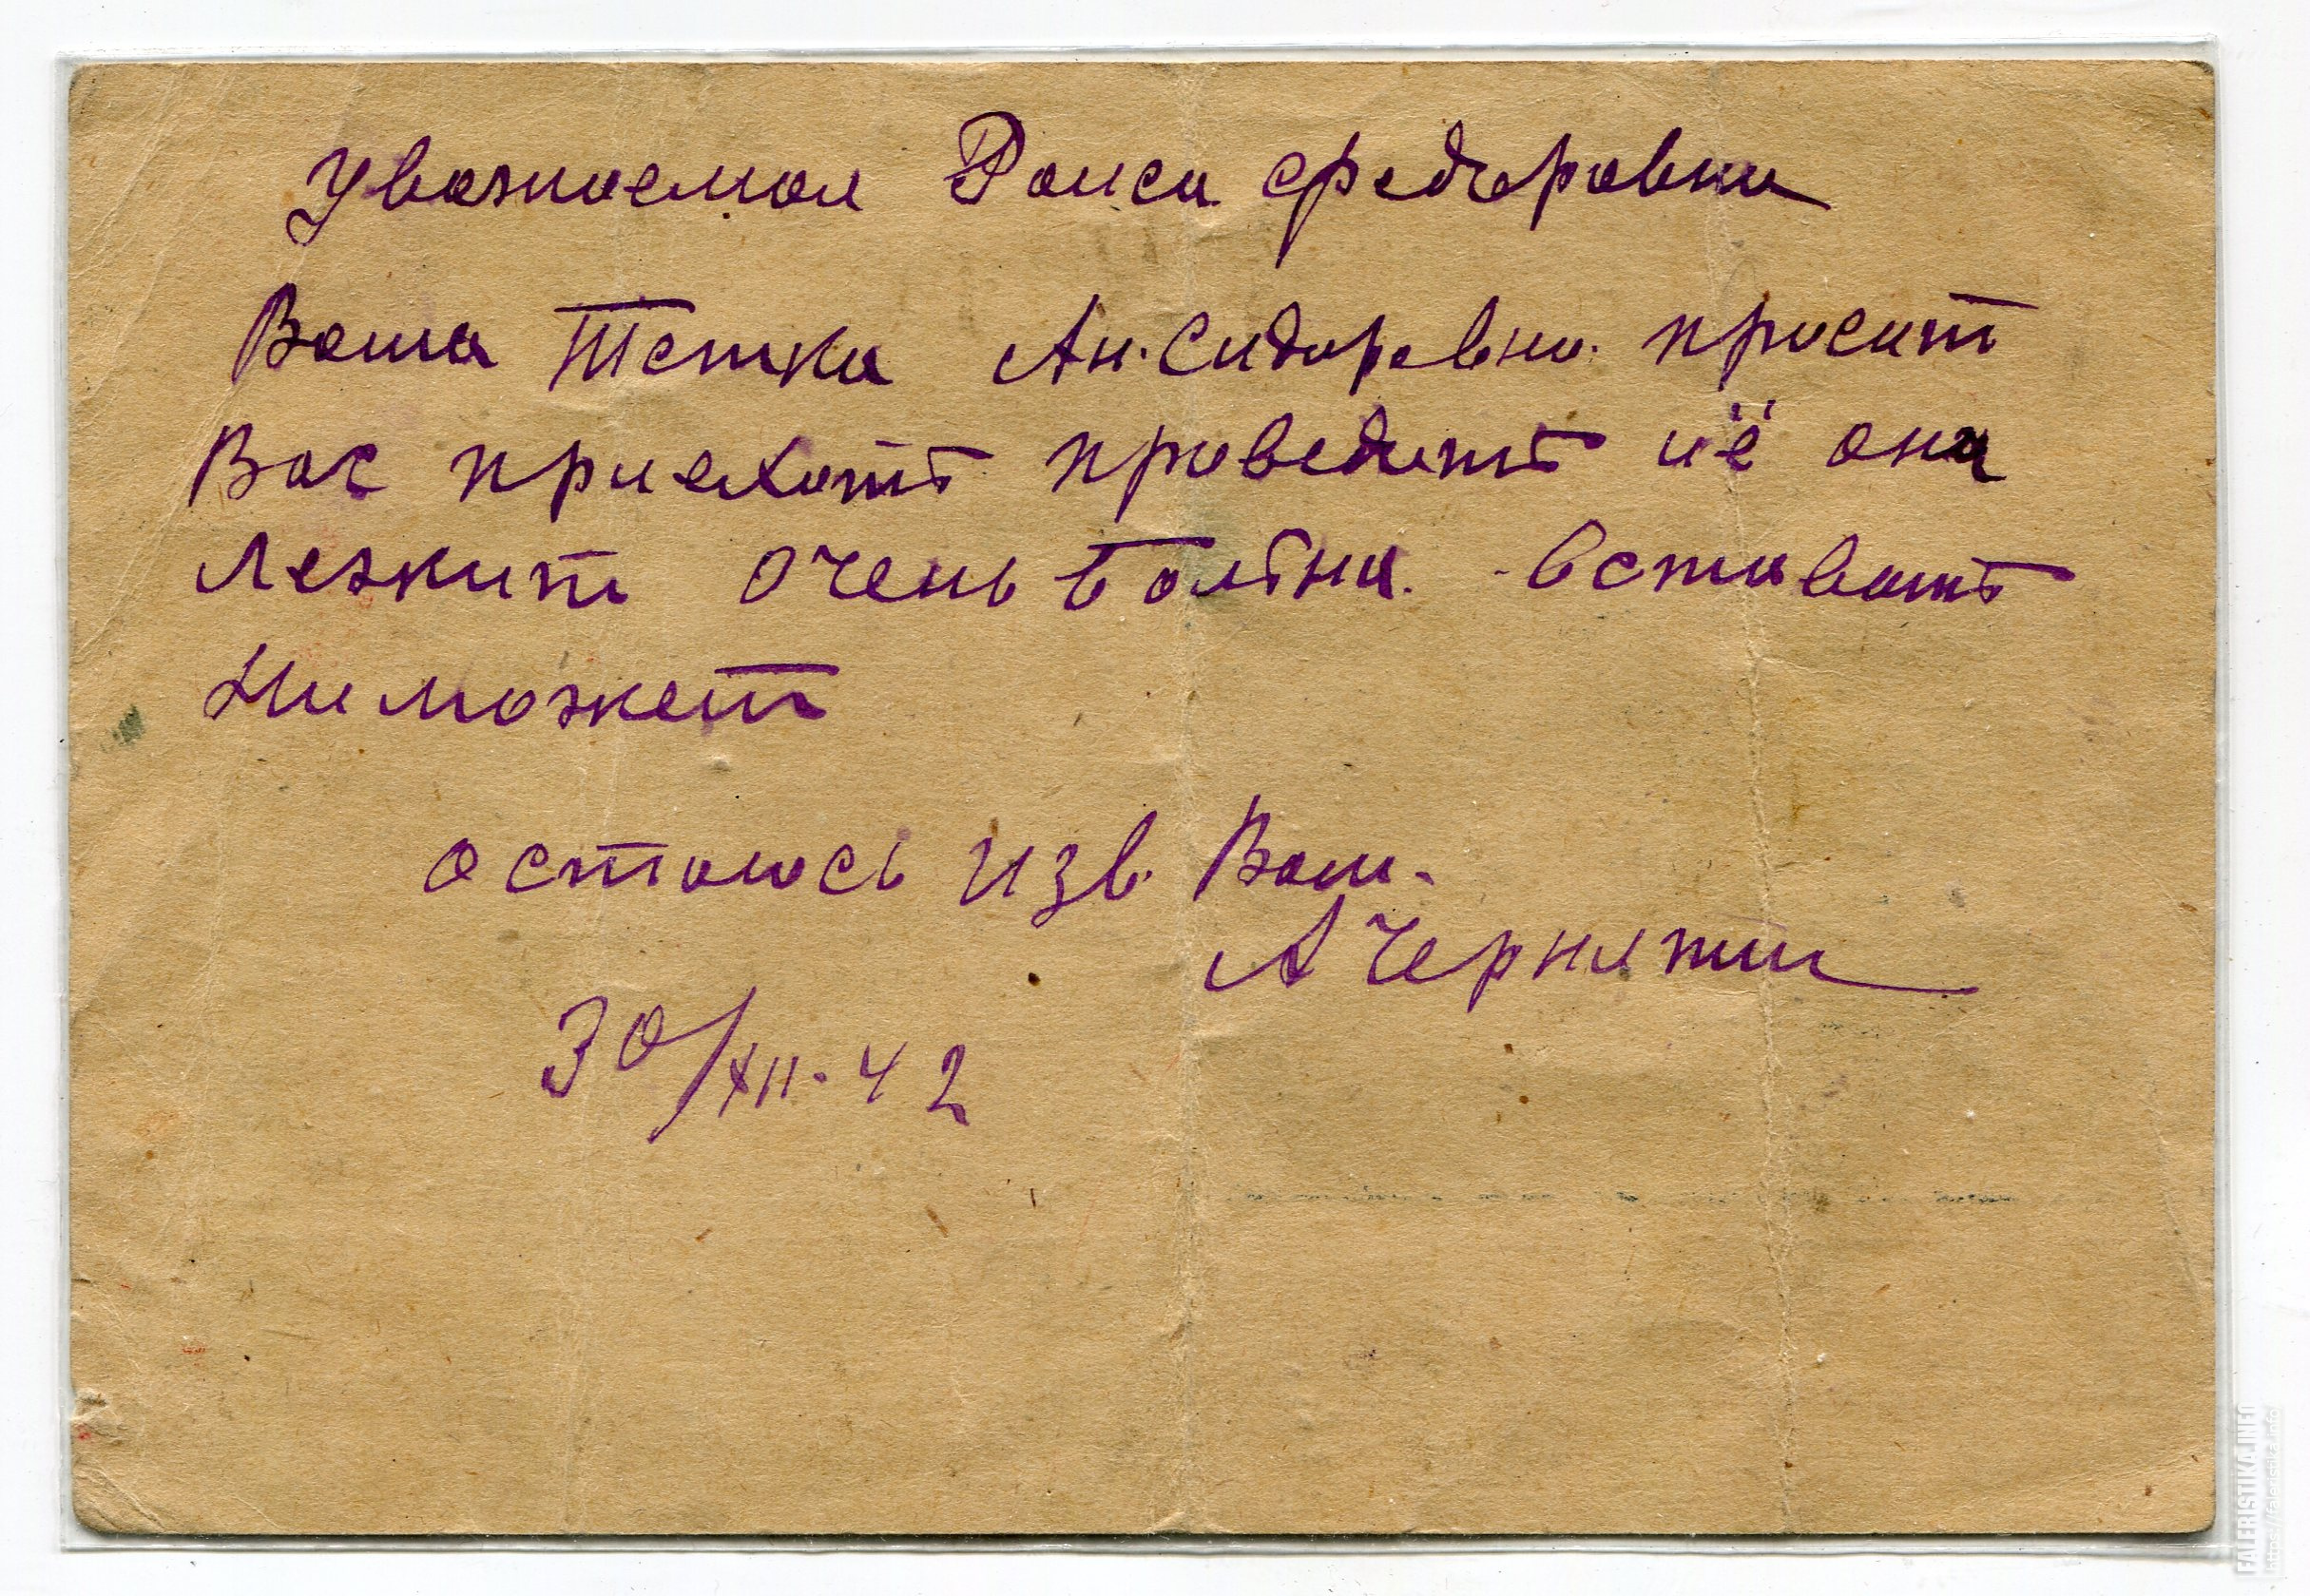 Уважаемая Раиса Федоровна
Ваша Тетка Ан. Сидоровна. просит
Вас приехать проведить иё она
лежит очень больна. вставать
ни может
остаюсь изв. Вам.
А Черняти
30/XII-42
FALERISTIKA.INFO
https://faleristika.info